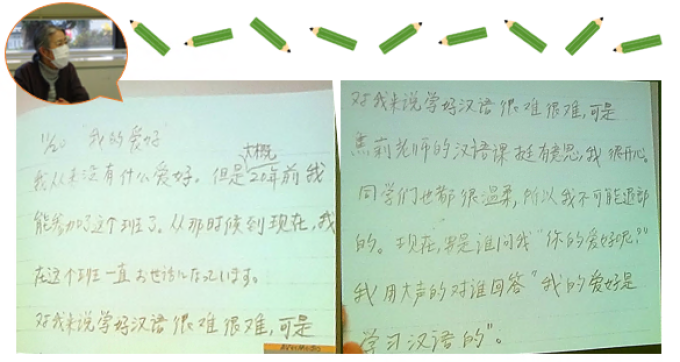 11/20 "我的爱好"
大概
我从来没有什么爱好。但是20年前我
能参加了这个班了。从那时候到现在,我
在这个班一直お世話になっています。
对我来说学好汉语很难很难,可是
对我来说学好汉语很难很难,可是
焦莉老师的汉语课挺有意思,我很开心。
同学们也都很温柔,所以我不可能退部
的。现在,要是谁问我"你的爱好呢?"
我用大声的对谁回答"我的爱好是
学习汉语的"。